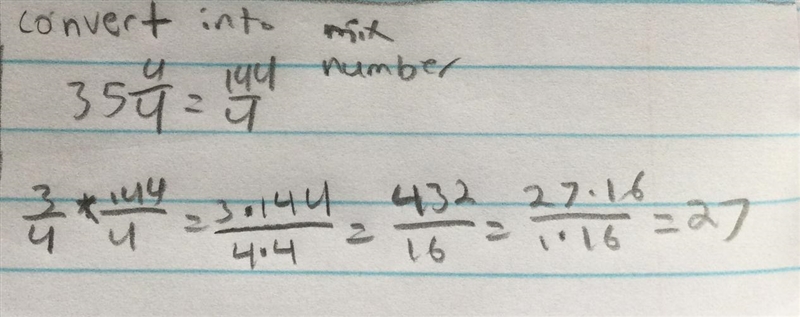 convert into mix
number
35 4/4 = 144/4
3/4 * 144/4 = 3·144/4·4 = 432/16 = 27·16/1·16 = 27